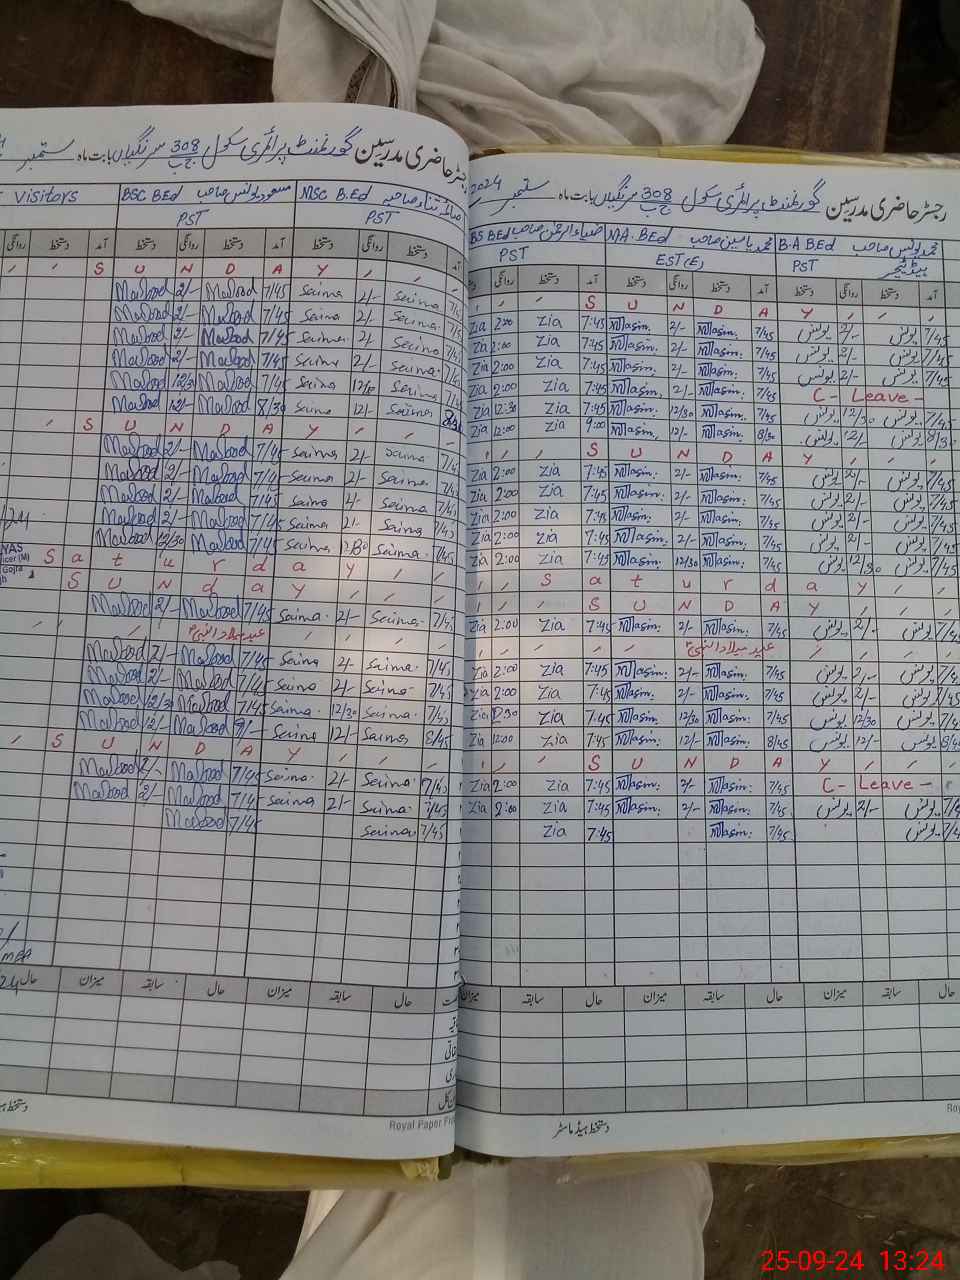 رجسٹر حاضری مدرسین گورنمنٹ پرائمری سکول 308 ج ب سرنگیاں بابت ماہ ستمبر
Visitors BSC BEd مسعود یونس صاحب MSC B.Ed
PST PST
روانگی دستخط آمد دستخط روانگی دستخط آمد دستخط روانگی دستخط آمد
S U N D A Y
Masood 2/- Masood 7/45 Saima 2/- Saima
Masood 2/- Masood 7/45 Saima 2/- Saima
Masood 2/- Masood 7/45 Saima 2/- Saima
Masood 2/- Masood 7/45 Saima 2/- Saima
Masood 12/30 Masood 7/45 Saima Saima
Masood 12/- Masood 8/30 Saima 12/- Saima
S U N D A Y
Masood 2/- Masood 7/45 Saima 2/- Saima
Masood 2/- Masood 7/45 Saima 2/- Saima
Masood 2/- Masood 7/45 Saima 2/- Saima
Masood 2/- Masood 7/45 Saima 2/- Saima
Masood 12/30 Masood 7/45 Saima Saima 7/45
S a t u r d a y
S U N d a y
Masood 2/- Masood 7/45 Saima 2/- Saima
عید میلادالنبیؐ
Masood 2/- Masood 7/45 Saima 2/- Saima 7/45
Masood 2/- Masood 7/45 Saima 2/- Saima 7/45
Masood 12/30 Masood 7/45 Saima 12/30 Saima 7/45
Masood 12/- Masood Saima 12/- Saima 8/45
S U N D A Y
Masood 2/- Masood 7/45 Saima 2/- Saima 7/45
Masood 2/- Masood 7/45 Saima 2/- Saima 7/45
Masood 7/45 Saima 7/45
حال میزان سابقہ حال میزان سابقہ حال
Royal Paper
رجسٹر حاضری مدرسین گورنمنٹ پرائمری سکول 308 ج ب سرنگیاں بابت ماہ ستمبر 2024
BS BEd ضیاء الرحمن صاحب M.A. BEd محمد یاسین صاحب B.A BEd محمد یونس صاحب
PST EST(E) PST ہیڈ ٹیچر
روانگی دستخط آمد دستخط روانگی دستخط آمد دستخط روانگی دستخط آمد
S U N D A Y
Zia 2:00 Zia 7:45 Yasin 2/- Yasin 7/45 یونس 2/- یونس 7/45
Zia 2:00 Zia 7:45 Yasin 2/- Yasin 7/45 یونس 2/- یونس 7/45
Zia 2:00 Zia 7:45 Yasin 2/- Yasin 7/45 یونس 2/- یونس 7/45
Zia 2:00 Zia 7:45 Yasin 2/- Yasin 7/45 C- Leave -
Zia 12:30 Zia 7:45 Yasin 12/30 Yasin 7/45 یونس 12/30 یونس 7/45
Zia 12:00 Zia 9:00 Yasin 12/- Yasin 8/30 یونس 12/- یونس 8/30
S U N D A Y
Zia 2:00 Zia 7:45 Yasin 2/- Yasin 7/45 یونس 2/- یونس 7/45
Zia 2:00 Zia 7:45 Yasin 2/- Yasin 7/45 یونس 2/- یونس 7/45
Zia 2:00 Zia 7:45 Yasin 2/- Yasin 7/45 یونس 2/- یونس 7/45
Zia 2:00 Zia 7:45 Yasin 2/- Yasin 7/45 یونس 2/- یونس 7/45
Zia 2:00 Zia 7:45 Yasin 12/30 Yasin 7/45 یونس 12/30 یونس 7/45
S a t u r d a y
S U N D A Y
Zia 2:00 Zia 7:45 Yasin 2/- Yasin 7/45 یونس 2/- یونس
عید میلادالنبیؐ
Zia 2:00 Zia 7:45 Yasin 2/- Yasin 7/45 یونس 2/- یونس
Zia 2:00 Zia 7:45 Yasin 2/- Yasin 7/45 یونس 2/- یونس
Zia Zia 7:45 Yasin 12/30 Yasin 7/45 یونس 12/30 یونس
Zia 12:00 Zia 7:45 Yasin 12/- Yasin 8/45 یونس 12/- یونس
S U N D A Y
Zia 2:00 Zia 7:45 Yasin 2/- Yasin 7/45 C- Leave -
Zia 2:00 Zia 7:45 Yasin 2/- Yasin 7/45 یونس 2/- یونس
Zia 7:45 Yasin 7/45 یونس
میزان سابقہ حال میزان سابقہ حال میزان سابقہ حال
دستخط ہیڈ ماسٹر
25-09-24 13:24